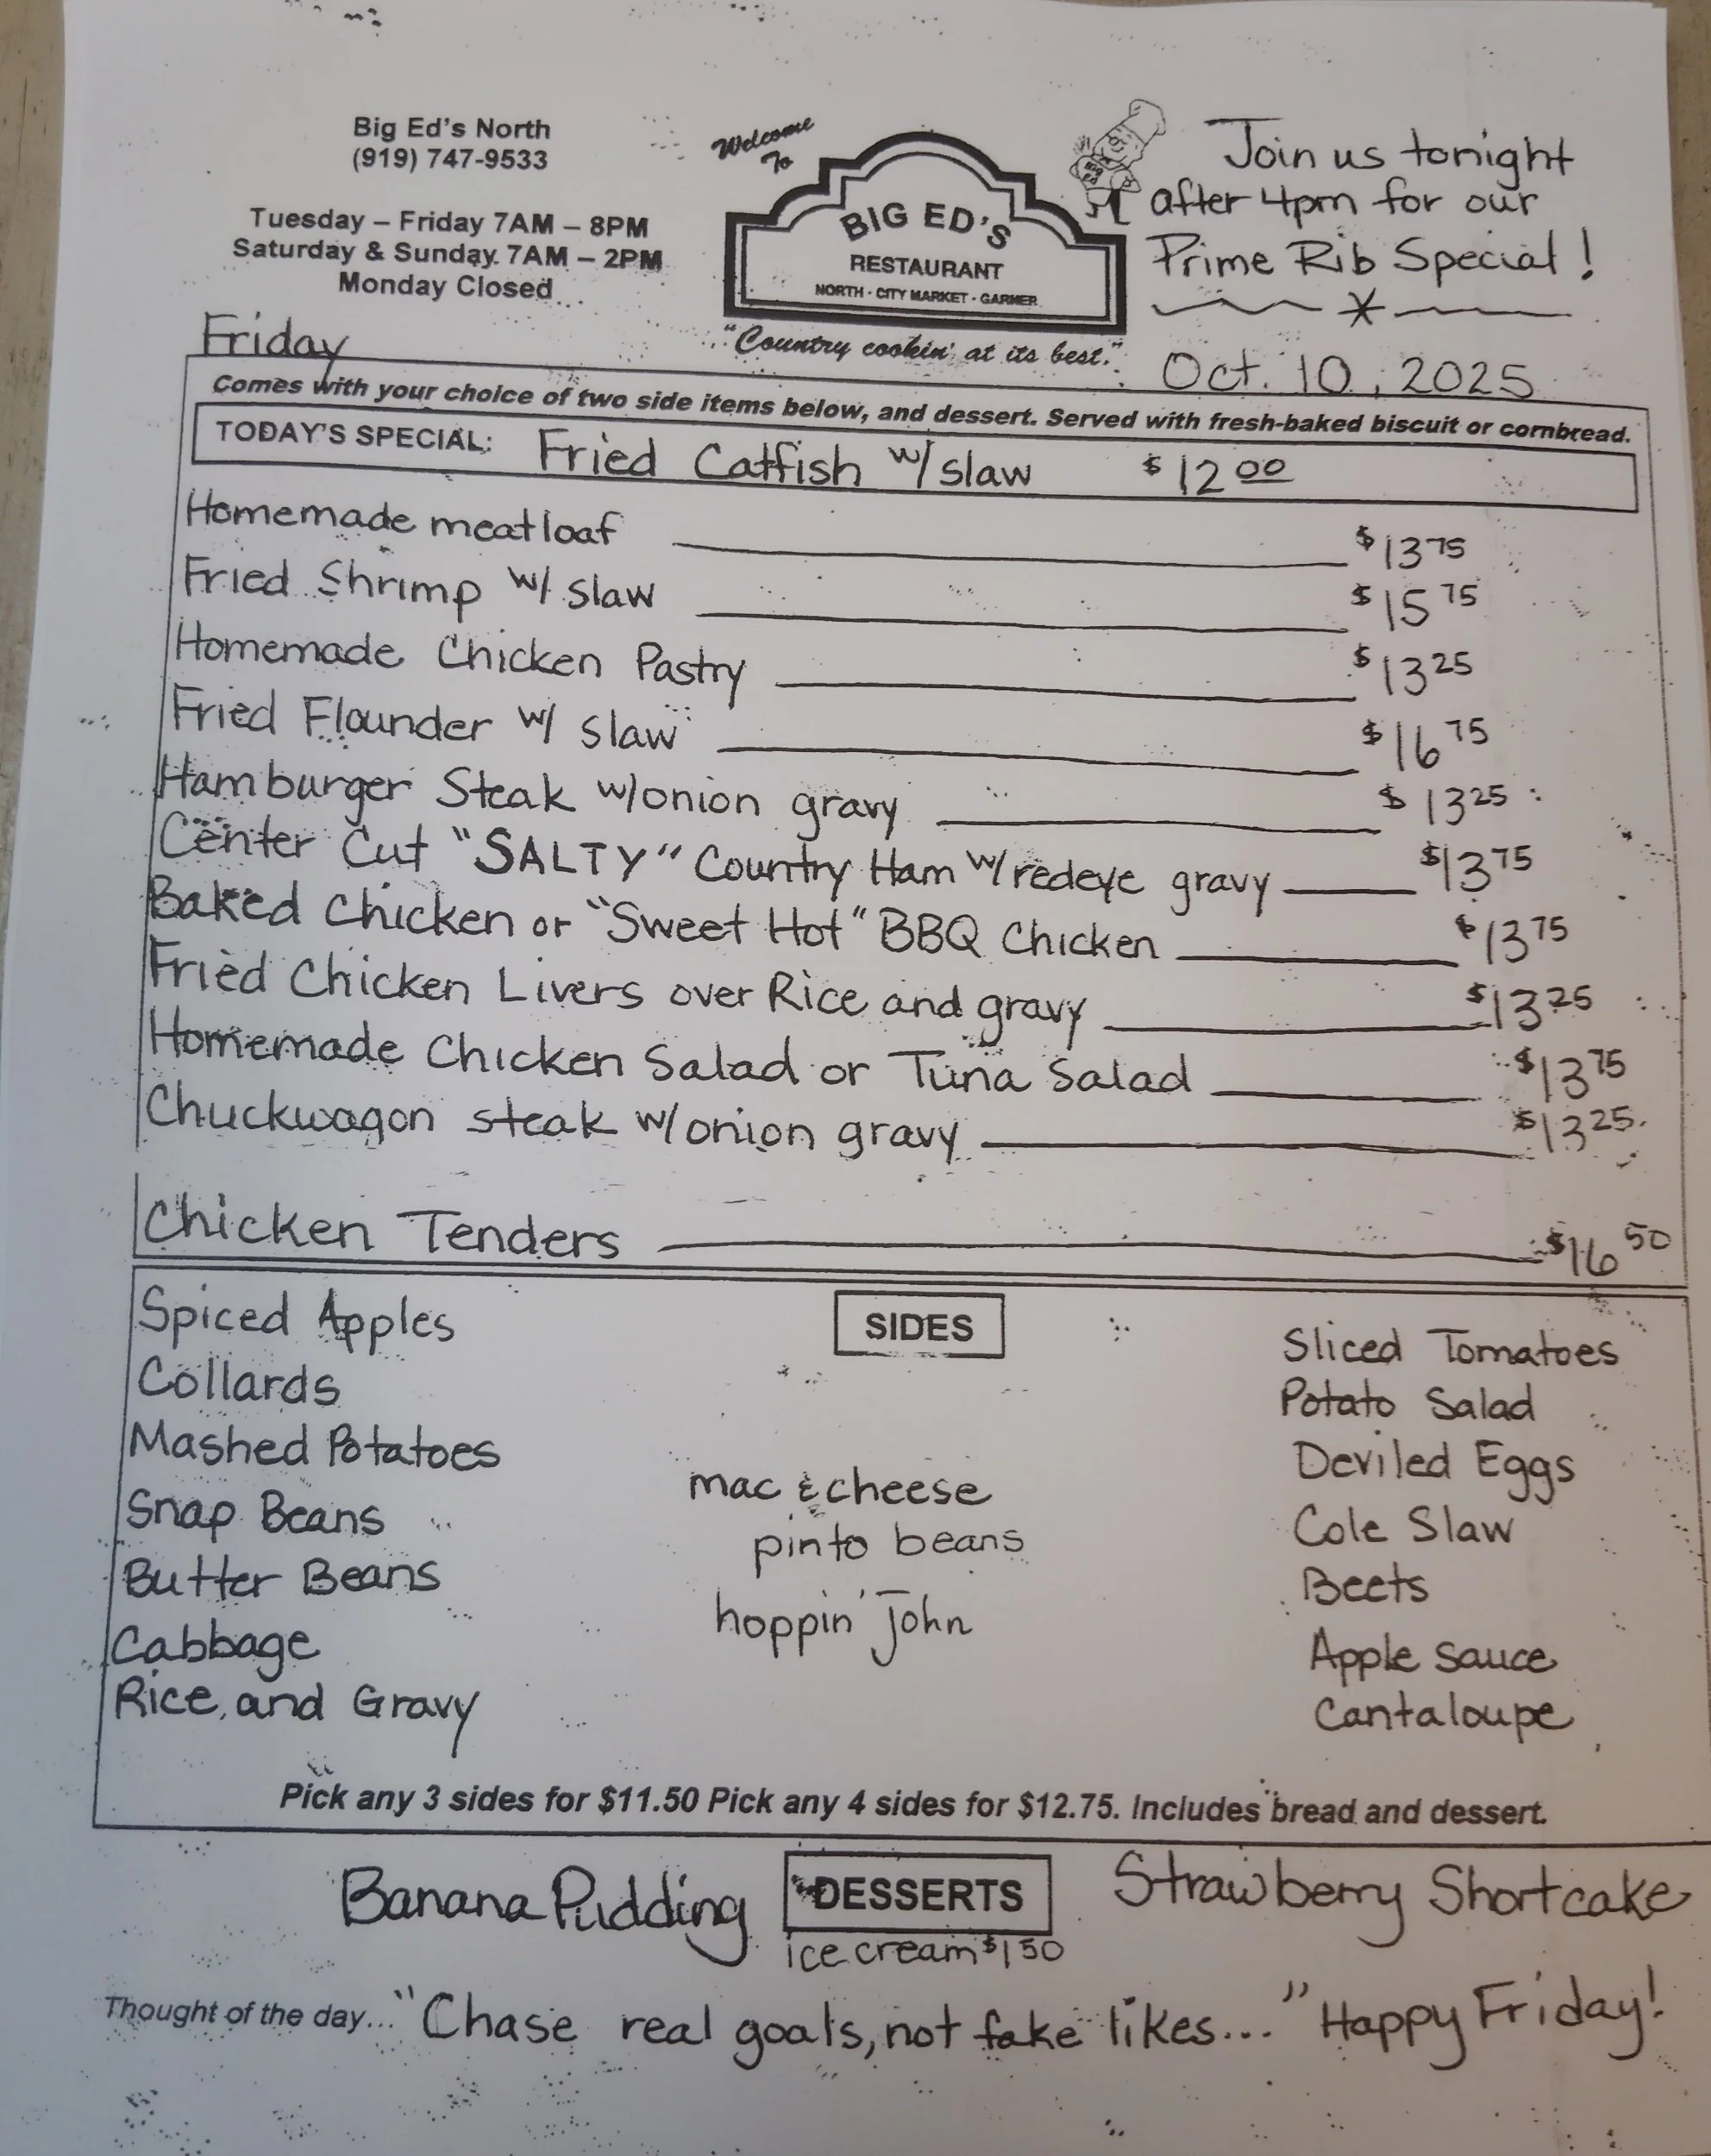 Big Ed's North
(919) 747-9533
Tuesday – Friday 7AM – 8PM
Saturday & Sunday 7AM – 2PM
Monday Closed
Welcome
To
BIG ED'S
RESTAURANT
NORTH - CITY MARKET - GARNER
"Country cookin' at its best."
Join us tonight
after 4pm for our
Prime Rib Special!
Friday
Oct. 10, 2025
Comes with your choice of two side items below, and dessert. Served with fresh-baked biscuit or cornbread.
TODAY'S SPECIAL: Fried Catfish w/ slaw $12 00
Homemade meatloaf $13 75
Fried Shrimp w/ slaw $15 75
Homemade Chicken Pastry $13 25
Fried Flounder w/ slaw $16 75
Hamburger Steak w/onion gravy $13 25
Center Cut "SALTY" Country Ham w/redeye gravy $13 75
Baked Chicken or "Sweet Hot" BBQ Chicken $13 75
Fried Chicken Livers over Rice and gravy $13 25
Homemade Chicken Salad or Tuna Salad $13 75
Chuckwagon steak w/onion gravy $13 25
Chicken Tenders $16 50
SIDES
Spiced Apples
Collards
Mashed Potatoes
Snap Beans
Butter Beans
Cabbage
Rice and Gravy
mac & cheese
pinto beans
hoppin' John
Sliced Tomatoes
Potato Salad
Deviled Eggs
Cole Slaw
Beets
Apple Sauce
Cantaloupe
Pick any 3 sides for $11.50 Pick any 4 sides for $12.75. Includes bread and dessert.
Banana Pudding DESSERTS Strawberry Shortcake
ice cream $1 50
Thought of the day... "Chase real goals, not fake likes..." Happy Friday!